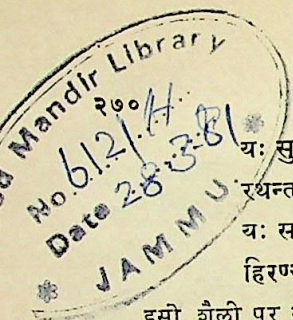 Mandir Library
२७०
No. 6121H
Date 28.3.81
JAMMU
यः
रथन्त
यः स
हिरण्
इसी शैली पर